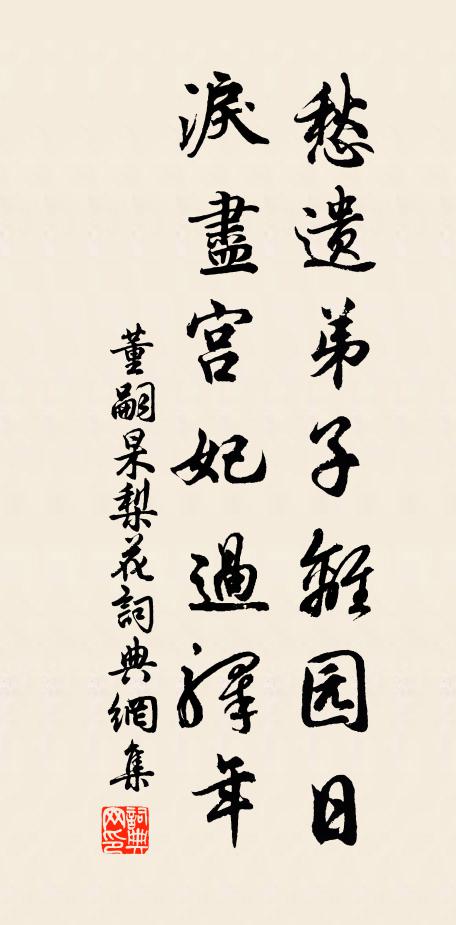 愁遗弟子離园日
淚盡宫妃過驛年
董嗣杲梨花詞典網集
詞典网印